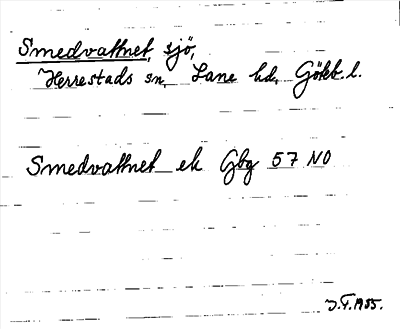 Smedvattnet, sjö,
Herrestads sn, Lane hd, Göteb. l.
Smedvattnet ek Gbg 57 NO
J.F. 1955.